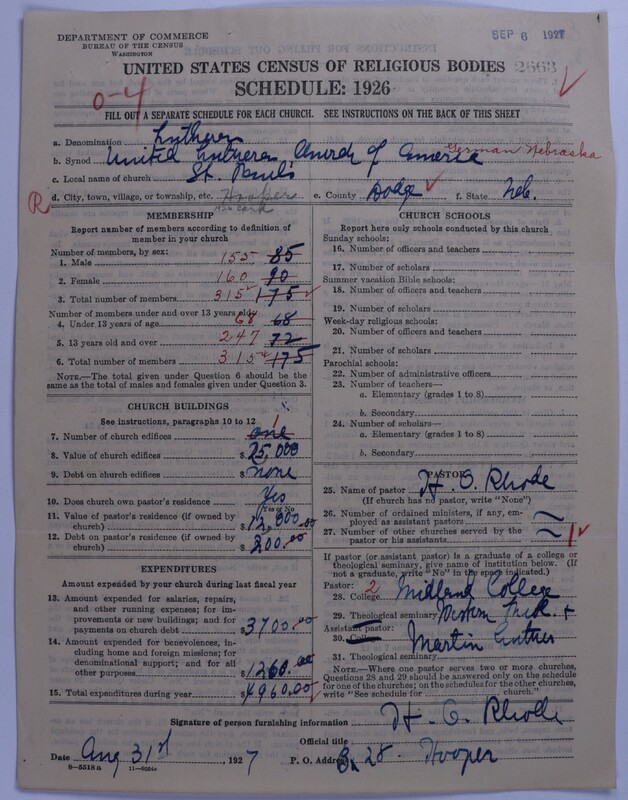 DEPARTMENT OF COMMERCE
BUREAU OF THE CENSUS
WASHINGTON
SEP 6 1927
UNITED STATES CENSUS OF RELIGIOUS BODIES 2663
SCHEDULE: 1926
0-4
FILL OUT A SEPARATE SCHEDULE FOR EACH CHURCH. SEE INSTRUCTIONS ON THE BACK OF THIS SHEET
a. Denomination Lutheran
b. Synod United Lutheran Church of America German Nebraska
c. Local name of church St. Paul's
R d. City, town, village, or township, etc. Hooper e. County Dodge f. State Neb.
MEMBERSHIP
Report number of members according to definition of member in your church
Number of members, by sex:
1. Male 155 85
2. Female 160 90
3. Total number of members 315 175
Number of members under and over 13 years old:
4. Under 13 years of age 68 68
5. 13 years old and over 247 72
6. Total number of members 315 175
NOTE.—The total given under Question 6 should be the same as the total of males and females given under Question 3.
CHURCH BUILDINGS
See instructions, paragraphs 10 to 12
7. Number of church edifices one 1
8. Value of church edifices $25,000
9. Debt on church edifices $ none
10. Does church own pastor's residence Yes
(Yes or No)
11. Value of pastor's residence (if owned by church) $12,000.00
12. Debt on pastor's residence (if owned by church) $ 200.00
EXPENDITURES
Amount expended by your church during last fiscal year
13. Amount expended for salaries, repairs, and other running expenses; for improvements or new buildings; and for payments on church debt $3700.00
14. Amount expended for benevolences, including home and foreign missions; for denominational support; and for all other purposes $1260.00
15. Total expenditures during year $4960.00
CHURCH SCHOOLS
Report here only schools conducted by this church
Sunday schools:
16. Number of officers and teachers
17. Number of scholars
Summer vacation Bible schools:
18. Number of officers and teachers
19. Number of scholars
Week-day religious schools:
20. Number of officers and teachers
21. Number of scholars
Parochial schools:
22. Number of administrative officers
23. Number of teachers—
a. Elementary (grades 1 to 8)
b. Secondary
24. Number of scholars—
a. Elementary (grades 1 to 8)
b. Secondary
PASTOR
25. Name of pastor H. O. Rhode
(If church has no pastor, write "None")
26. Number of ordained ministers, if any, employed as assistant pastors
27. Number of other churches served by the pastor or his assistants 1
If pastor (or assistant pastor) is a graduate of a college or theological seminary, give name of institution below. (If not a graduate, write "No" in the space indicated.)
Pastor: 2
28. College Midland College
29. Theological seminary Western Theol. +
Assistant pastor:
30. College Martin Luther
31. Theological seminary
NOTE.—Where one pastor serves two or more churches, Questions 28 and 29 should be answered only on the schedule for one of the churches; on the schedules for the other churches, write "See schedule for church."
Signature of person furnishing information H. O. Rhode
Official title
Date Aug 31st, 1927 P. O. Address B 28 Hooper
8-5518a 11-9054